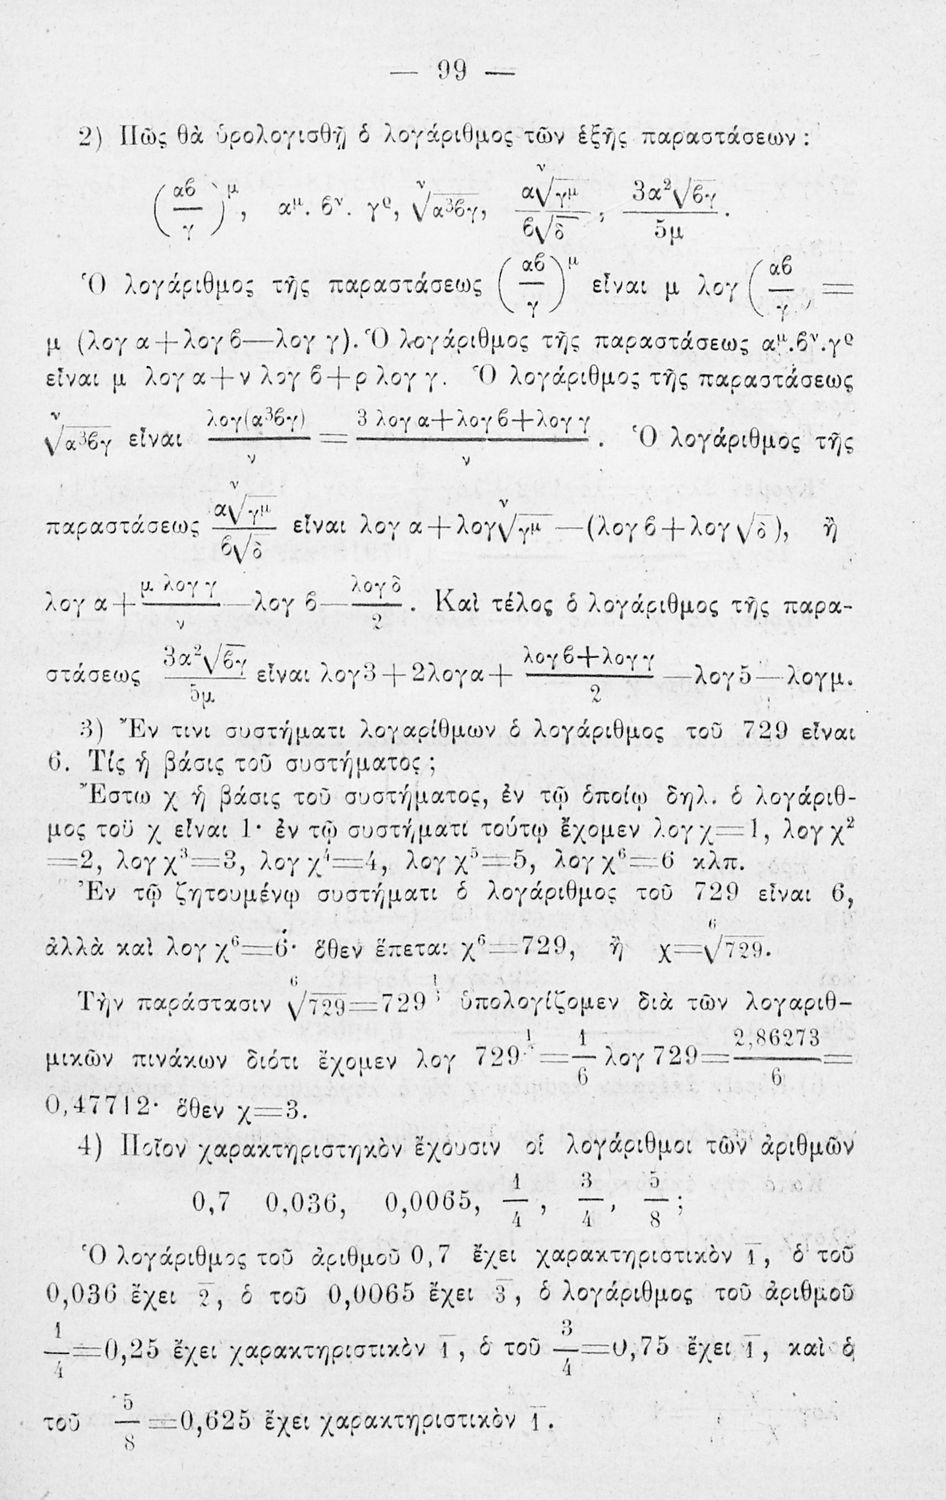 — 99 —
2) Πῶς θὰ ὑρολογισθῇ ὁ λογάριθμος τῶν ἑξῆς παραστάσεων :
(αϐ/γ)^μ, α^μ. ϐ^ν. γ^ϱ, ^ν√α³ϐγ, α ^ν√γ^μ / ϐ√δ, 3α²√ϐγ / 5μ.
Ὁ λογάριθμος τῆς παραστάσεως (αϐ/γ)^μ εἶναι μ λογ (αϐ/γ) =
μ (λογ α+λογ ϐ—λογ γ). Ὁ λογάριθμος τῆς παραστάσεως α^μ.ϐ^ν.γ^ϱ
εἶναι μ λογ α+ν λογ ϐ+ρ λογ γ. Ὁ λογάριθμος τῆς παραστάσεως
^ν√α³ϐγ εἶναι λογ(α³ϐγ)/ν = 3 λογ α+λογ ϐ+λογ γ/ν. Ὁ λογάριθμος τῆς
παραστάσεως α ^ν√γ^μ / ϐ√δ εἶναι λογ α+λογ ^ν√γ^μ —(λογ ϐ+λογ √δ), ἢ
λογ α+ μ λογ γ/ν —λογ ϐ— λογ δ/2. Καὶ τέλος ὁ λογάριθμος τῆς παρα-
στάσεως 3α²√ϐγ / 5μ εἶναι λογ3+2λογα+ λογϐ+λογγ/2 —λογ5—λογμ.
3) Ἔν τινι συστήματι λογαρίθμων ὁ λογάριθμος τοῦ 729 εἶναι
6. Τίς ἡ βάσις τοῦ συστήματος ;
Ἔστω χ ἡ βάσις τοῦ συστήματος, ἐν τῷ ὁποίῳ δηλ. ὁ λογάριθ-
μος τοῦ χ εἶναι 1· ἐν τῷ συστήματι τούτῳ ἔχομεν λογ χ=1, λογ χ²
=2, λογ χ³=3, λογ χ⁴=4, λογ χ⁵=5, λογ χ⁶=6 κλπ.
Ἐν τῷ ζητουμένῳ συστήματι ὁ λογάριθμος τοῦ 729 εἶναι 6,
ἀλλὰ καὶ λογ χ⁶=6· ὅθεν ἕπεται χ⁶=729, ἢ χ=⁶√729.
Τὴν παράστασιν ⁶√729=729^1/6 ὑπολογίζομεν διὰ τῶν λογαριθ-
μικῶν πινάκων διότι ἔχομεν λογ 729^1/6 = 1/6 λογ 729= 2,86273/6 =
0,47712· ὅθεν χ=3.
4) Ποῖον χαρακτηριστηκὸν ἔχουσιν οἱ λογάριθμοι τῶν ἀριθμῶν
0,7 0,036, 0,0065, 1/4, 3/4, 5/8 ;
Ὁ λογάριθμος τοῦ ἀριθμοῦ 0,7 ἔχει χαρακτηριστικὸν 1̅, ὁ τοῦ
0,036 ἔχει 2̅, ὁ τοῦ 0,0065 ἔχει 3̅, ὁ λογάριθμος τοῦ ἀριθμοῦ
1/4=0,25 ἔχει χαρακτηριστικὸν 1̅, ὁ τοῦ 3/4=0,75 ἔχει 1̅, καὶ ὁ
τοῦ 5/8=0,625 ἔχει χαρακτηριστικὸν 1̅.